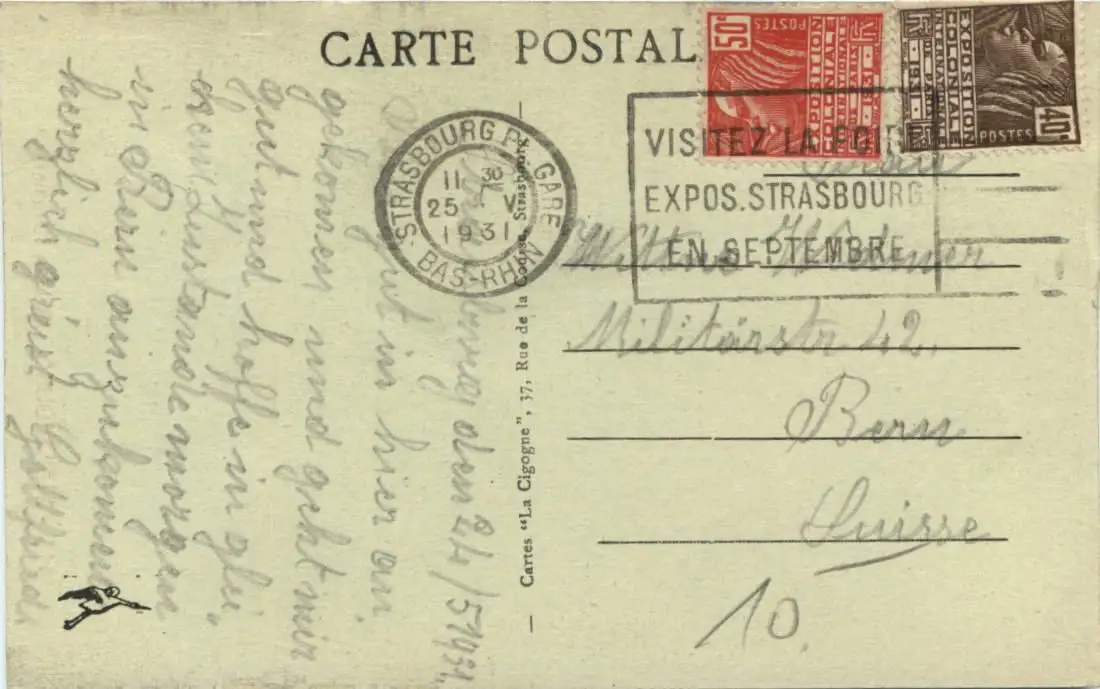 CARTE POSTAL
50c
POSTES
EXPOSITION
COLONIALE
INTERNATIONALE
PARIS 1931
EXPOSITION
COLONIALE
INTERNATIONALE
PARIS 1931
POSTES
40c
STRASBOURG PL. GARE
11 30
25 V
1931
BAS-RHIN
VISITEZ LA FOIRE
EXPOS. STRASBOURG
EN SEPTEMBRE
den 24/5 1931.
gut in hier an
gekomen und geht mir
gut und hoffe in glei
chem Zustande morgen
in Bern anzukomen
herzlich grüsst Gottfried
Cartes "La Cigogne", 37, Rue de la Course, Strasbourg
Frau
Militärstr 42.
Bern
Suisse
10.